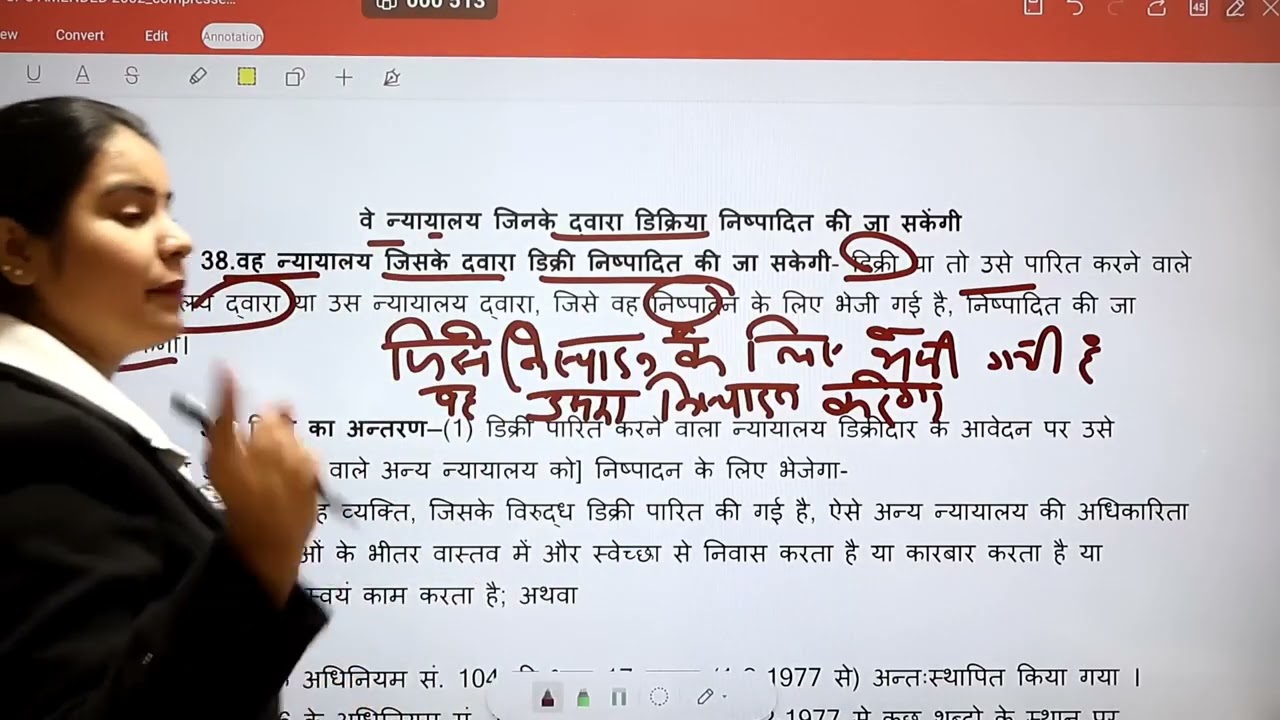 000 513
Convert Edit Annotation
45
वे न्यायालय जिनके द्वारा डिक्रिया निष्पादित की जा सकेंगी
38.वह न्यायालय जिसके द्वारा डिक्री निष्पादित की जा सकेगी- डिक्री या तो उसे पारित करने वाले
द्वारा या उस न्यायालय द्वारा, जिसे वह निष्पादन के लिए भेजी गई है, निष्पादित की जा
जिसे के लिए भेजी गयी है
वह उसका निष्पादन करेगा
का अन्तरण–(1) डिक्री पारित करने वाला न्यायालय डिक्रीदार के आवेदन पर उसे
वाले अन्य न्यायालय को] निष्पादन के लिए भेजेगा-
व्यक्ति, जिसके विरुद्ध डिक्री पारित की गई है, ऐसे अन्य न्यायालय की अधिकारिता
के भीतर वास्तव में और स्वेच्छा से निवास करता है या कारबार करता है या
स्वयं काम करता है; अथवा
अधिनियम सं. 104 1977 से) अन्तःस्थापित किया गया ।